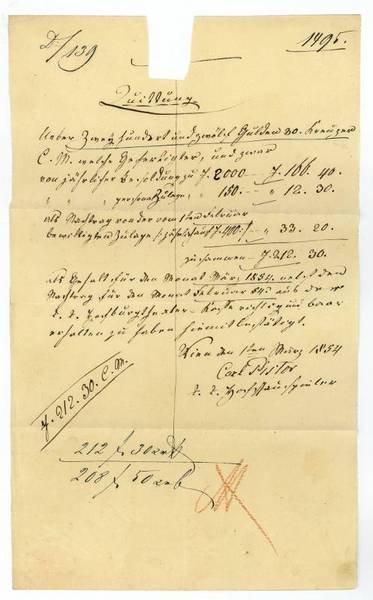 D/139
1495.
Quittung
Ueber Zwey hundert und zwölf Gulden 30. Kreuzer
C. M. welche Gefertigter, und zwar
von jährlicher Besoldung zu f. 2000 — f. 166. 40.
" " personalzulage " 150. — " 12. 30.
als Nachtrag von der vom 1ten Februar
bewilligten Zulage jährlich auf f. 400. " 33. 20
zusammen — f. 212. 30.
als Gehalt für den Monat März 1854, nebst dem
Nachtrag für den Monat Februar aus der
k. k. Hofburgtheater-Kasse richtig und baar
erhalten zu haben hiemit bestätiget.
Wien den 1ten März 1854
Carl Pistor
k. k. Hofschauspieler
f. 212. 30. C. M.
212 f 30
208 f 50